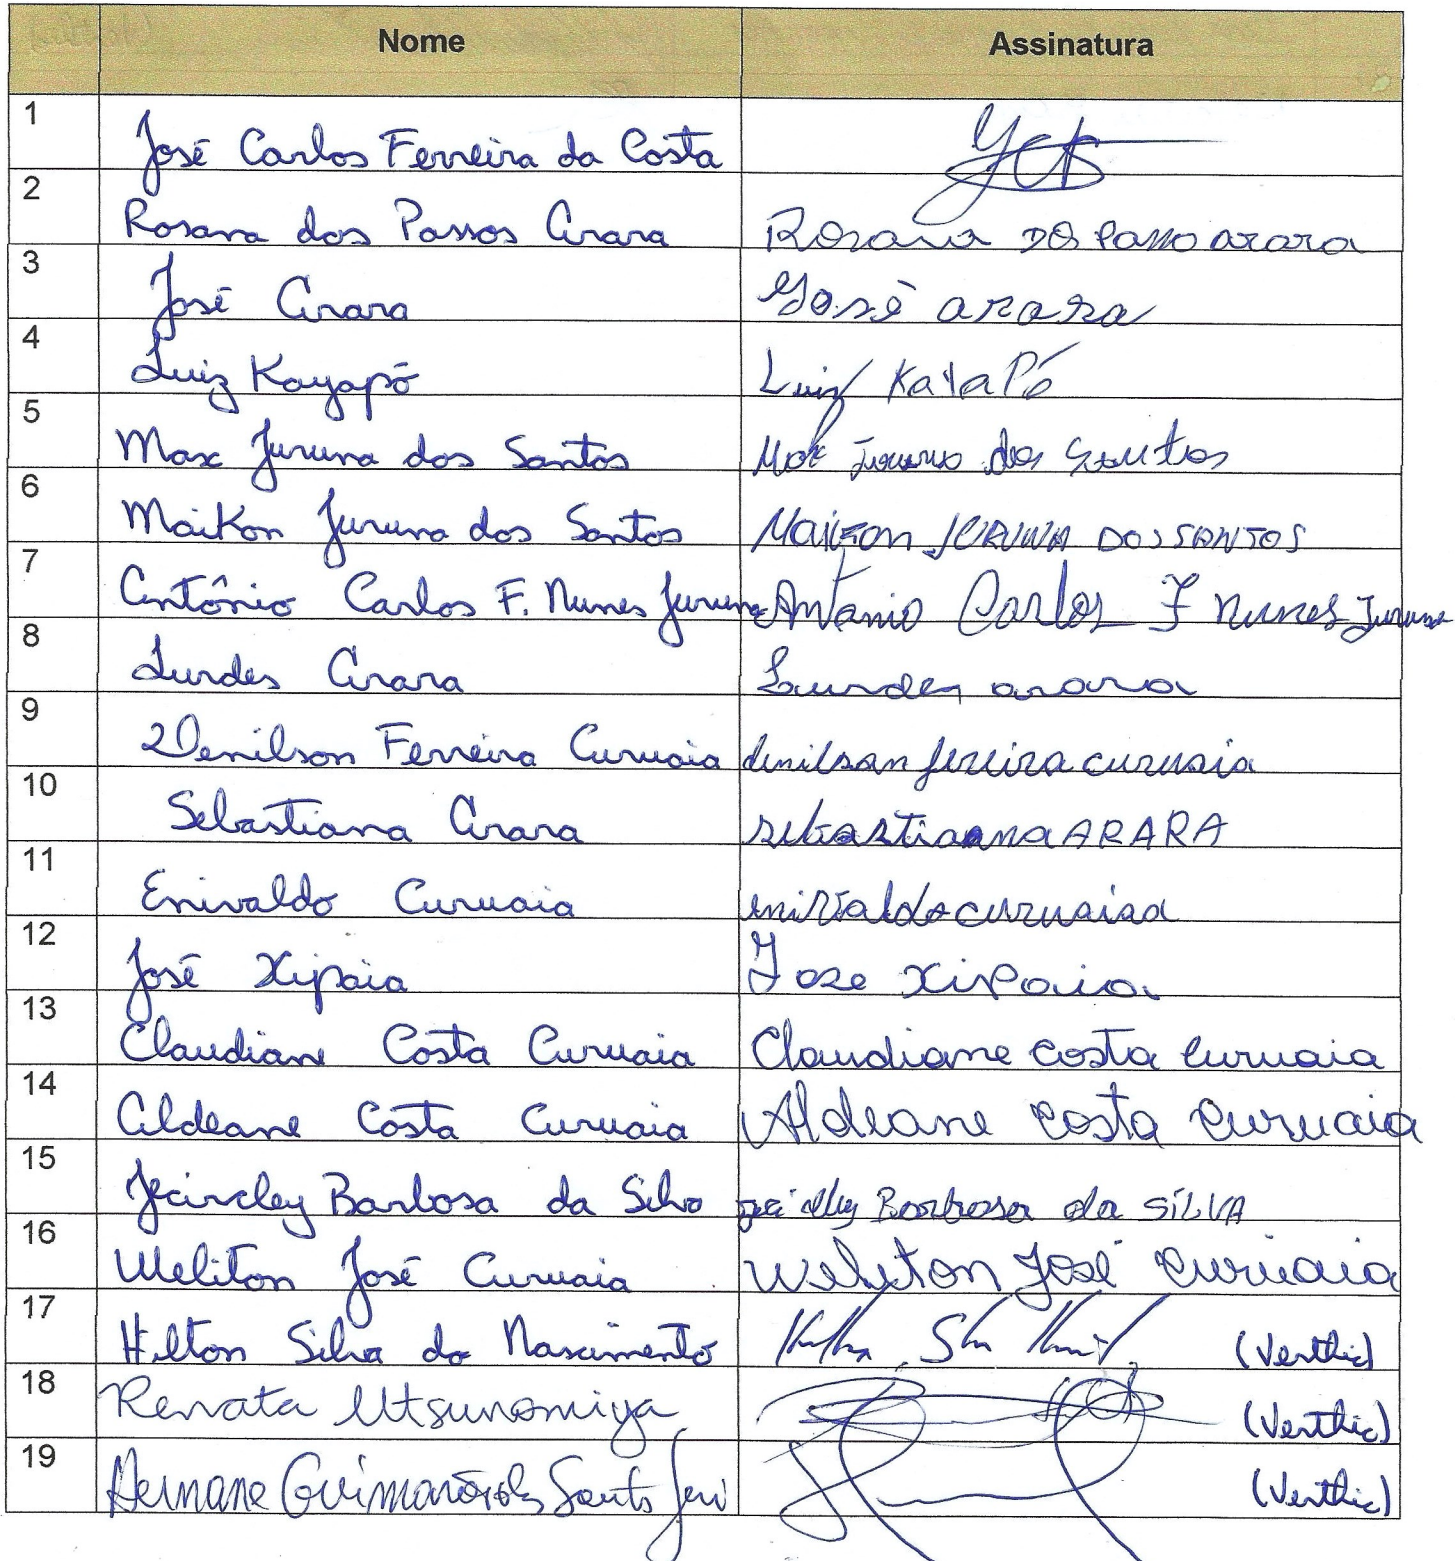 Nome Assinatura
1 José Carlos Ferreira da Costa
2 Rosana dos Passos Arara Rosana DOS Passo arara
3 José Arara José arara
4 Luiz Kayapó Luiz KaiaPó
5 Max Juruna dos Santos Max Juruna dos Santos
6 Maikon Juruna dos Santos Maikon JURUNA DOS SANTOS
7 Antônio Carlos F. Nunes Juruna Antonio Carlos F Nunes Juruna
8 Lurdes Arara Lourdes arara
9 Denilson Ferreira Curuaia denilson fereira curuaia
10 Sebastiana Arara sebastiana ARARA
11 Enivaldo Curuaia enivaldo curuaia
12 José Xipaia Joze XiPaia
13 Claudiane Costa Curuaia Claudiane costa Curuaia
14 Aldeane Costa Curuaia Aldeane costa Curuaia
15 Barbosa da Silva Barbosa da SÍLVA
16 Weliton José Curuaia Weliton José Curuaia
17 Hilton Silva do Nascimento (Verthic)
18 Renata Utsunomiya (Verthic)
19 Guimarães (Verthic)